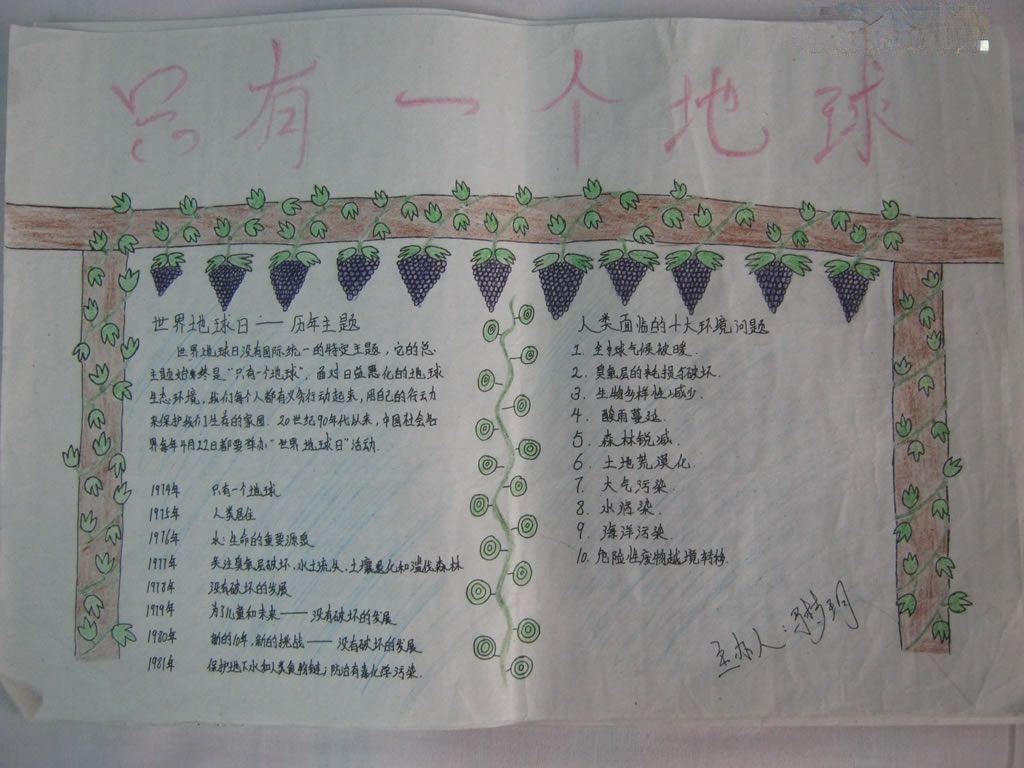 只有一个地球
世界地球日——历年主题
世界地球日没有国际统一的特定主题，它的总
主题始终是"只有一个地球"。面对日益恶化的地球
生态环境，我们每个人都有义务行动起来，用自己的行动
来保护我们生存的家园。20世纪90年代以来，中国社会各
界每年4月22日都要举办"世界地球日"活动.
1974年 只有一个地球
1975年 人类居住
1976年 水:生命的重要源泉
1977年 关注臭氧层破坏、水土流失、土壤退化和滥伐森林
1978年 没有破坏的发展
1979年 为了儿童和未来——没有破坏的发展
1980年 新的10年,新的挑战——没有破坏的发展
1981年 保护地下水和人类食物链；防治有毒化学污染.
人类面临的十大环境问题
1. 全球气候被暖.
2. 臭氧层的耗损与破坏.
3. 生物多样性减少.
4. 酸雨蔓延
5. 森林锐减.
6. 土地荒漠化.
7. 大气污染.
8. 水污染.
9. 海洋污染.
10. 危险性废物越境转移.
主办人：